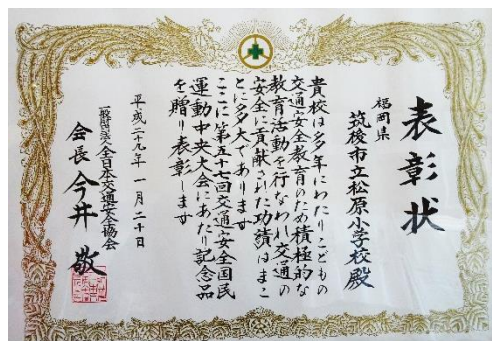 表彰状
福岡県
筑後市立松原小学校殿
貴校は多年にわたりこどもの
交通安全教育のため積極的な
教育活動を行なわれ交通の
安全に貢献された功績はまこ
とに多大であります
ここに第五十七回交通安全国民
運動中央大会にあたり記念品
を贈り表彰します
平成二十九年一月二十日
一般財団法人全日本交通安全協会
会長今井敬